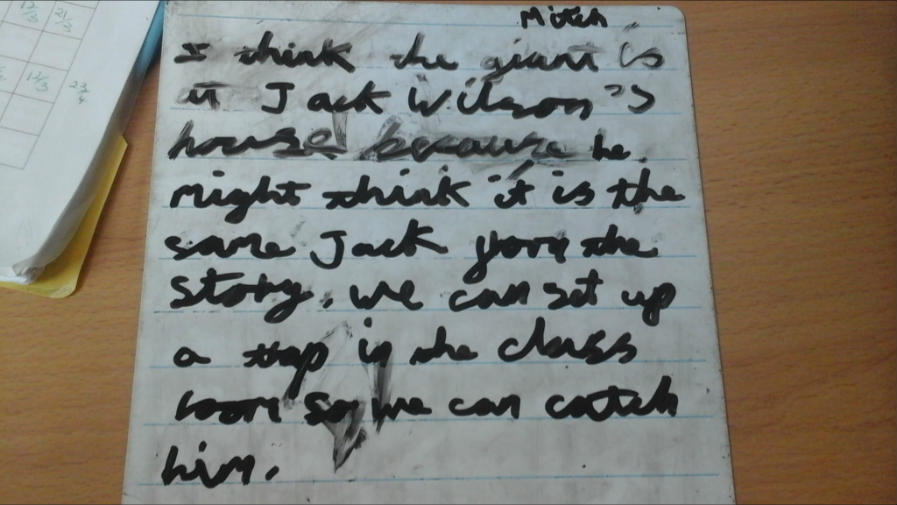 Mitch
I think the giant is
at Jack Wilson's
house because he
might think it is the
same Jack from the
story. we can set up
a trap in the class
room so we can catch
him.
12/3 21/3
1 2/3 2 3/4